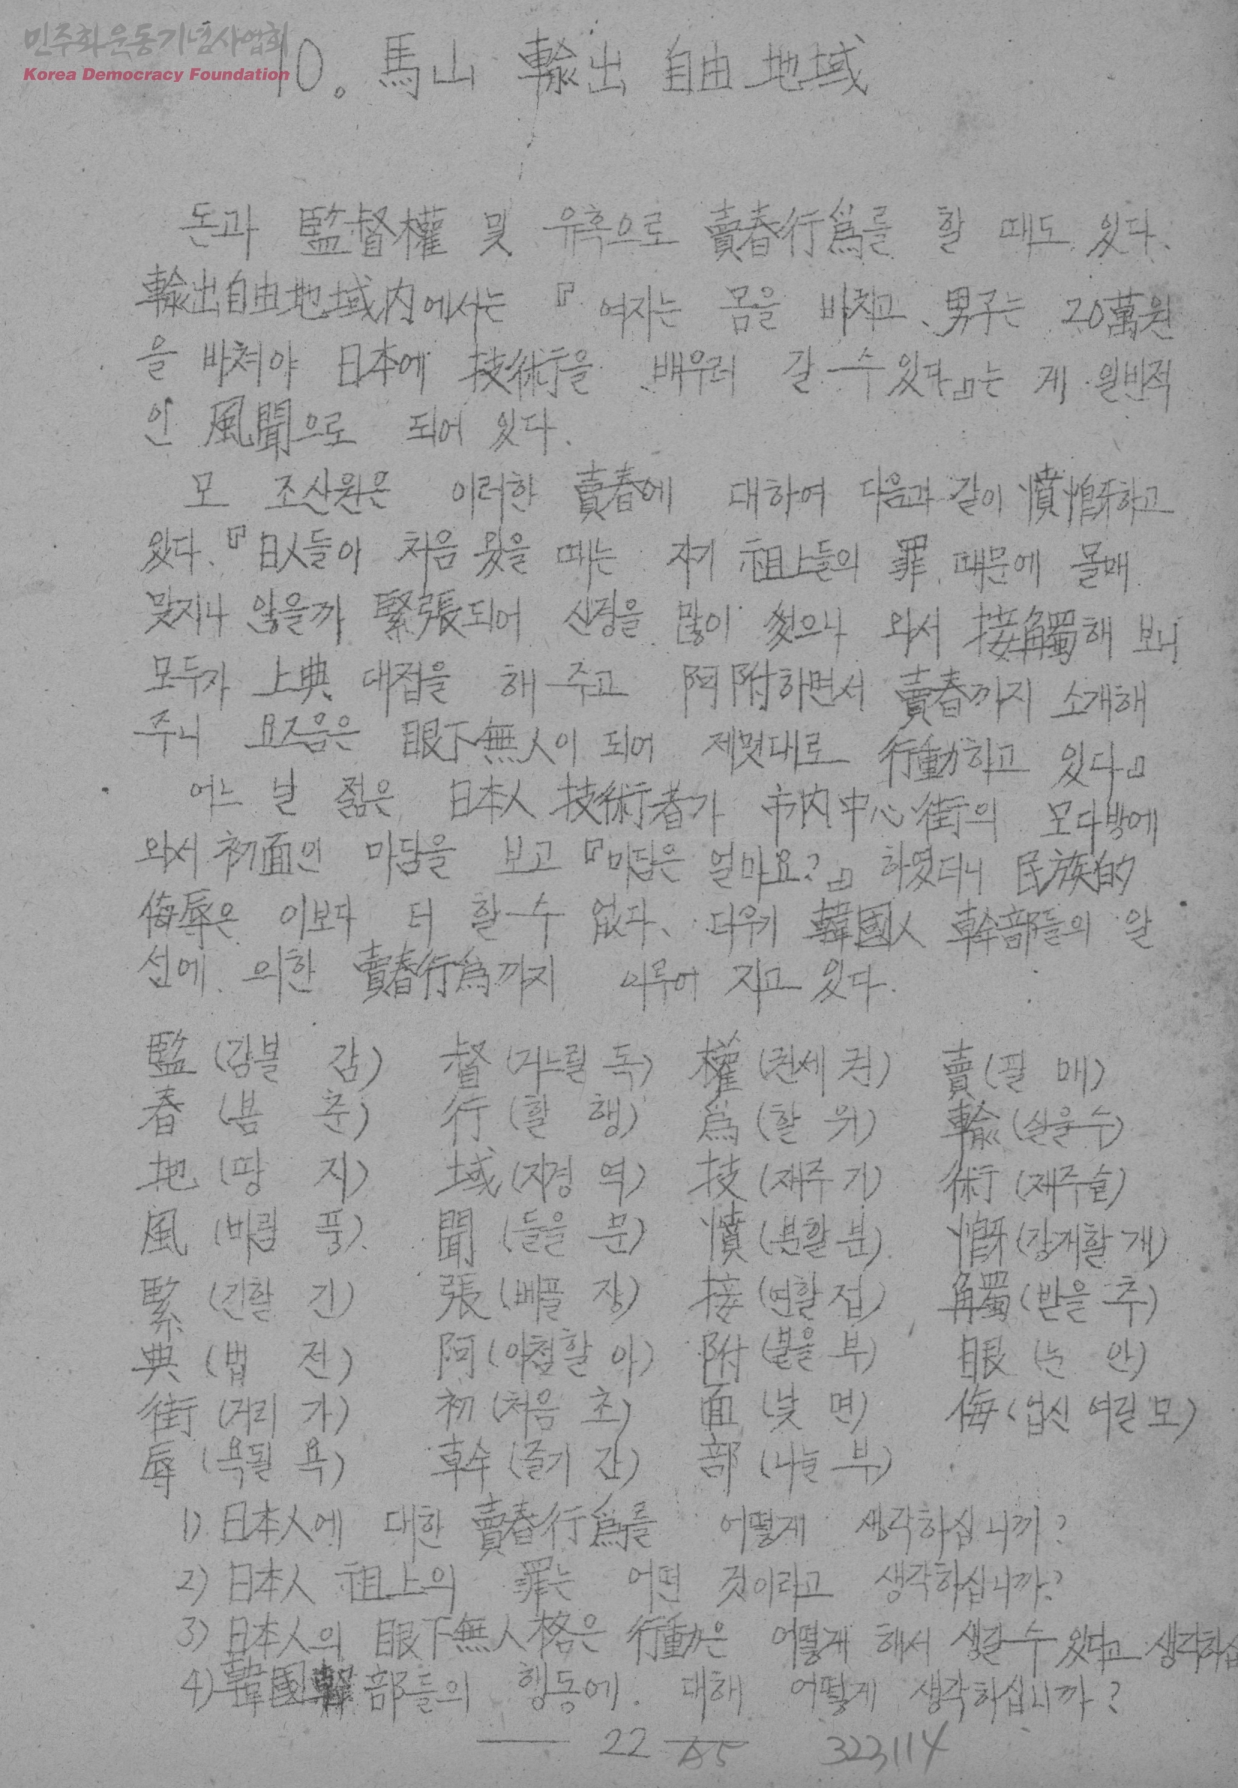 민주화운동기념사업회
Korea Democracy Foundation
10. 馬山 輸出 自由地域
돈과 監督權 및 유혹으로 賣春行爲를 할 때도 있다.
輸出自由地域内에서는 『여자는 몸을 바치고、男子는 20萬원
을 바쳐야 日本에 技術을 배우러 갈 수 있다』는 게 일반적
인 風聞으로 되어 있다.
모 조산원은 이러한 賣春에 대하여 다음과 같이 憤慨하고
있다.『日人들이 처음 왔을 때는 자기 祖上들의 罪 때문에 몰매
맞지나 않을까 緊張되어 신경을 많이 썼으나 와서 接觸해 보니
모두가 上典 대접을 해 주고 阿附하면서 賣春까지 소개해
주니 요즈음은 眼下無人이 되어 제멋대로 行動하고 있다』
어느 날 젊은 日本人 技術者가 市内中心街의 모다방에
와서 初面인 마담을 보고 『마담은 얼마요?』 하였더니 民族的
侮辱은 이보다 더 할 수 없다. 더우기 韓國人 幹部들의 알
선에 의한 賣春行爲까지 이루어 지고 있다.
監 (감불 감) 督 (거느릴 독) 權 (권세 권) 賣 (팔 매)
春 (봄 춘) 行 (할 행) 爲 (할 위) 輸 (실을 수)
地 (땅 지) 域 (지경 역) 技 (재주 기) 術 (재주 술)
風 (바람 풍) 聞 (들을 문) 憤 (분할 분) 慨 (강개할 개)
緊 (긴할 긴) 張 (베풀 장) 接 (연할 접) 觸 (받을 추)
典 (법 전) 阿 (아첨할 아) 附 (붙을 부) 眼 (눈 안)
街 (거리 가) 初 (처음 초) 面 (낯 면) 侮 (업신 여길 모)
辱 (욕될 욕) 幹 (줄기 간) 部 (나눌 부)
1) 日本人에 대한 賣春行爲를 어떻게 생각하십니까?
2) 日本人 祖上의 罪는 어떤 것이라고 생각하십니까?
3) 日本人의 眼下無人格은 行動은 어떻게 해서 생길 수 있다고 생각하십
4) 韓國 部들의 행동에 대해 어떻게 생각하십니까?
22 323114